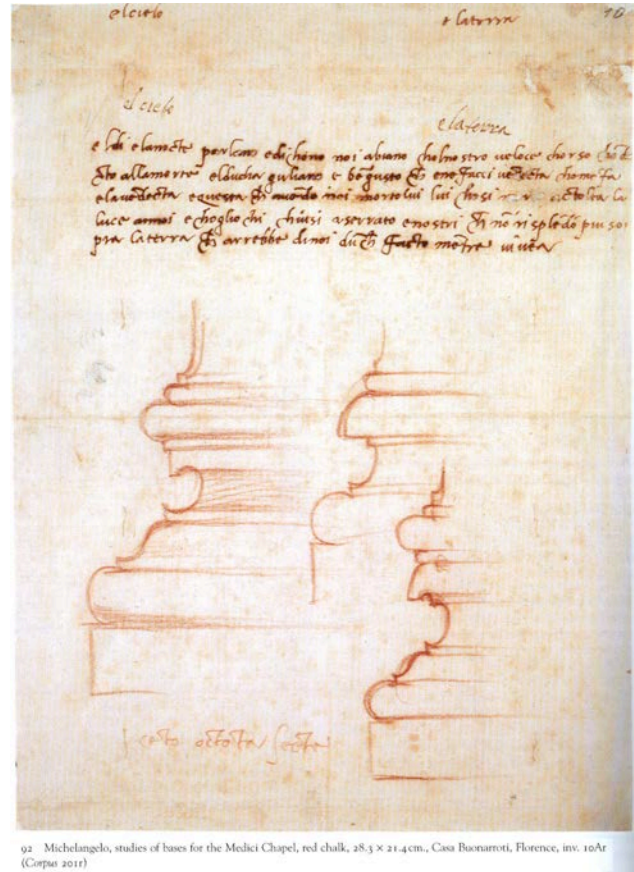 el cielo e la terra 10
el cielo e la terra
e ldi e lanocte parlano e dichono noi abiano chol nostro veloce chorso chō d
octo alla morte el ducha guliano e bē gusto che e ne facci vēdecta chome fa
e la vēdecta e questa che avendo noi morto lui lui chosi morto a tolta la
luce a noi e chogli ochi chiusi a serrato e nostri che nō risplēdō piu so
pra la terra che arrebbe di noi dūche facto mētre vivea
cēto octāta secte
92 Michelangelo, studies of bases for the Medici Chapel, red chalk, 28.3 × 21.4cm., Casa Buonarroti, Florence, inv. 10Ar
(Corpus 201r)